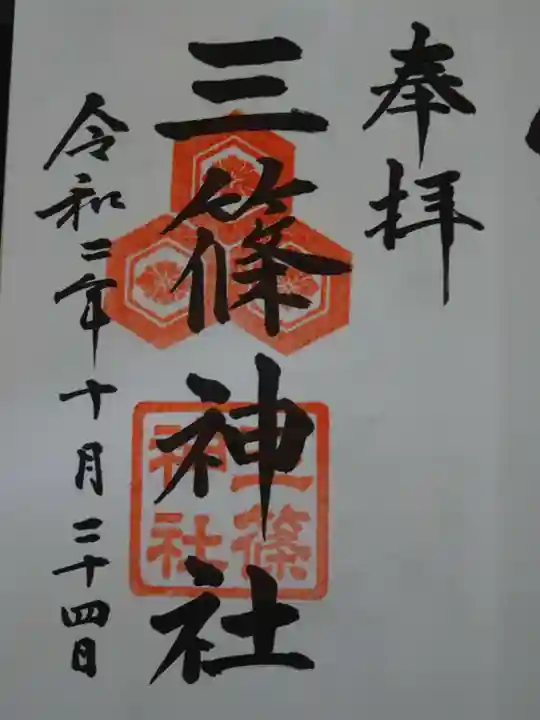 奉拝
三篠神社
三篠
神社
令和二年十月二十四日